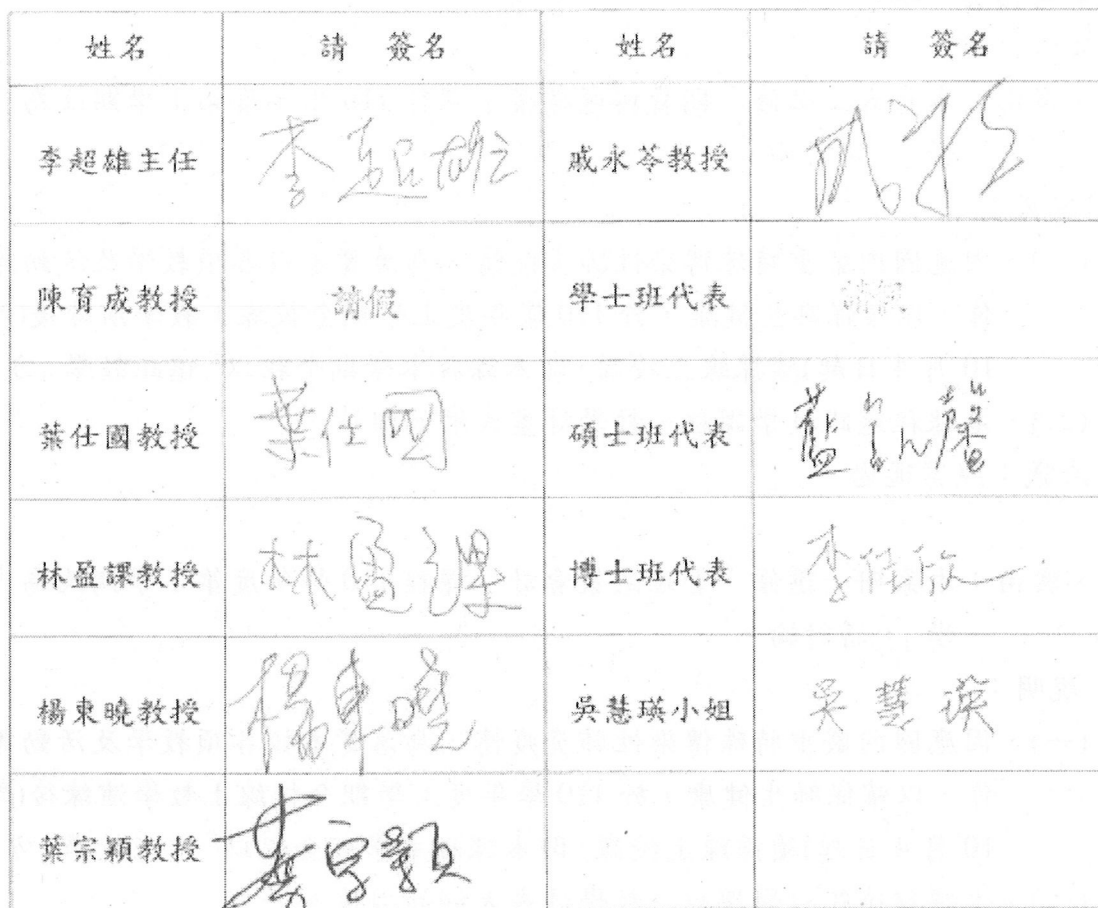 姓名 請 簽名 姓名 請 簽名
李超雄主任 李超雄 戚永苓教授
陳育成教授 請假 學士班代表 請假
葉仕國教授 葉仕國 碩士班代表
林盈課教授 林盈課 博士班代表
楊東曉教授 楊東曉 吳慧瑛小姐 吳慧瑛
葉宗穎教授 葉宗穎